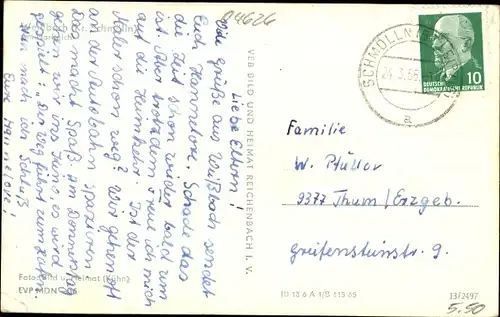 04626
Liebe Eltern!
Viele Grüße aus Wußbach sendet
Euch Hannelore. Schade das
die Zeit schon wieder bald um
ist. Aber trotzdem freue ich mich
auf die Heimkehr. Ist der
Maler schon weg? Wir gehen oft
an der Autobahn spazieren
Das macht Spaß. Am Donnerstag
gehen wir ins Kino, es wird
gespielt: „Der Weg führt zum
Nun mach ich Schluß
Eure Hannelore!
Foto: Bild u. Heimat (Kühn)
EVP MDN
VEB BILD UND HEIMAT REICHENBACH I. V.
SCHMÖLLN
24.3.65
a
10
DEUTSCHE
DEMOKRATISCHE REPUBLIK
Familie
W. Püller
9377 Thum/Erzgeb.
Greifensteinstr. 9
13/2497
5.50